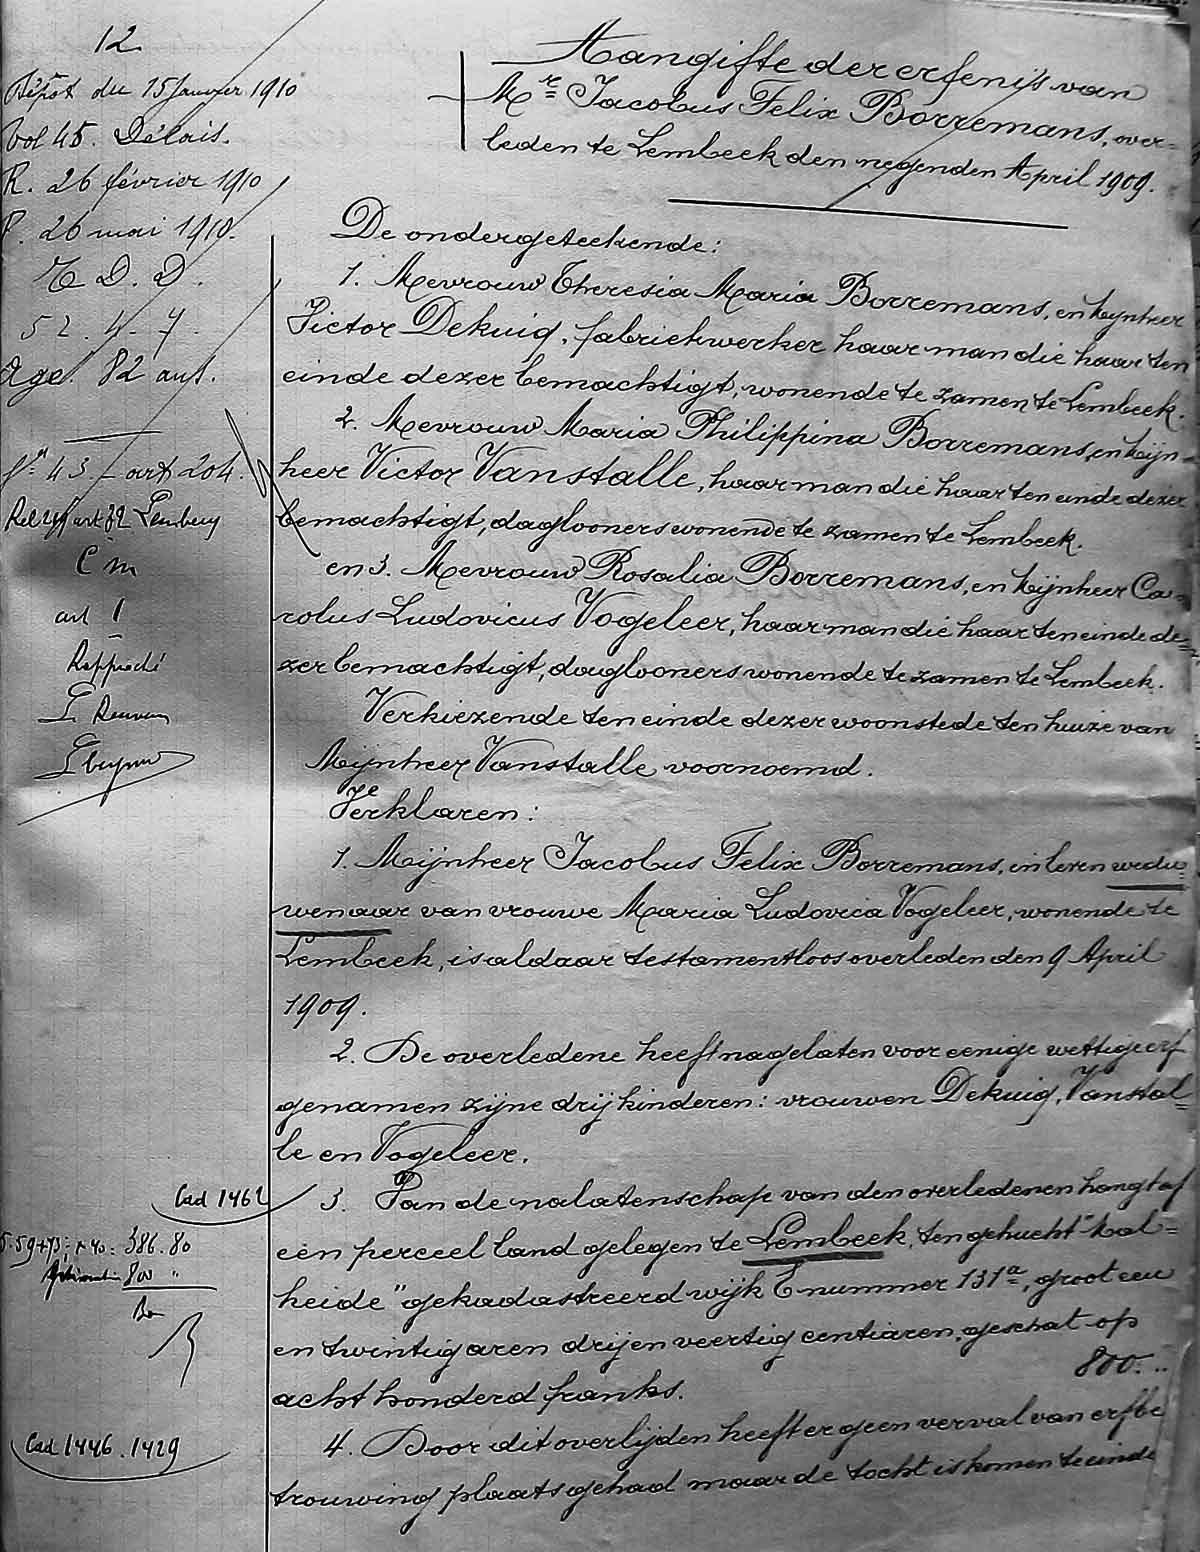 12
Dépôt du 15 Janvier 1910
Vol 45. Délais.
R. 26 février 1910
P. 26 mai 1910.
D. D.
52. 4. 7.
Age. 82 ans.
43 - art 204.
art 1
Rapproché
Cad 1462
386.80
800 "
Cad 1446. 1429
Aangifte der erfenis van
Mr Jacobus Felix Borremans, over-
leden te Lembeek den negenden April 1909.
De ondergeteekende:
1. Mevrouw Theresia Maria Borremans, en Mijnheer
Victor Dekuig, fabriekwerker haar man die haar ten
einde dezer bemachtigt, wonende te zamen te Lembeek.
2. Mevrouw Maria Philippina Borremans, en Mijn-
heer Victor Vanstalle, haar man die haar ten einde dezer
bemachtigt, daglooners wonende te zamen te Lembeek.
en 3. Mevrouw Rosalia Borremans, en Mijnheer Ca-
rolus Ludovicus Vogeleer, haar man die haar ten einde de-
zer bemachtigt, daglooners wonende te zamen te Lembeek.
Verkiezende ten einde dezer woonstede ten huize van
Mijnheer Vanstalle voornoemd.
Verklaren:
1. Mijnheer Jacobus Felix Borremans, in leven wedu-
wenaar van vrouwe Maria Ludovica Vogeleer, wonende te
Lembeek, is aldaar testamentloos overleden den 9 April
1909.
2. De overledene heeft nagelaten voor eenige wettige erf
genamen zijne drij kinderen: vrouwen Dekuig, Vanstal-
le en Vogeleer.
3. Van de nalatenschap van den overledenen hangt af
een perceel land gelegen te Lembeek, ten gehucht "Kal-
heide" gekadastreerd wijk E nummer 131a, groot een
en twintig aren drij en veertig centiaren, geschat op
acht honderd franks. 800. "
4. Door dit overlijden heeft er geen verval van erfbe
trouwing plaats gehad maar de tocht is komen te einde